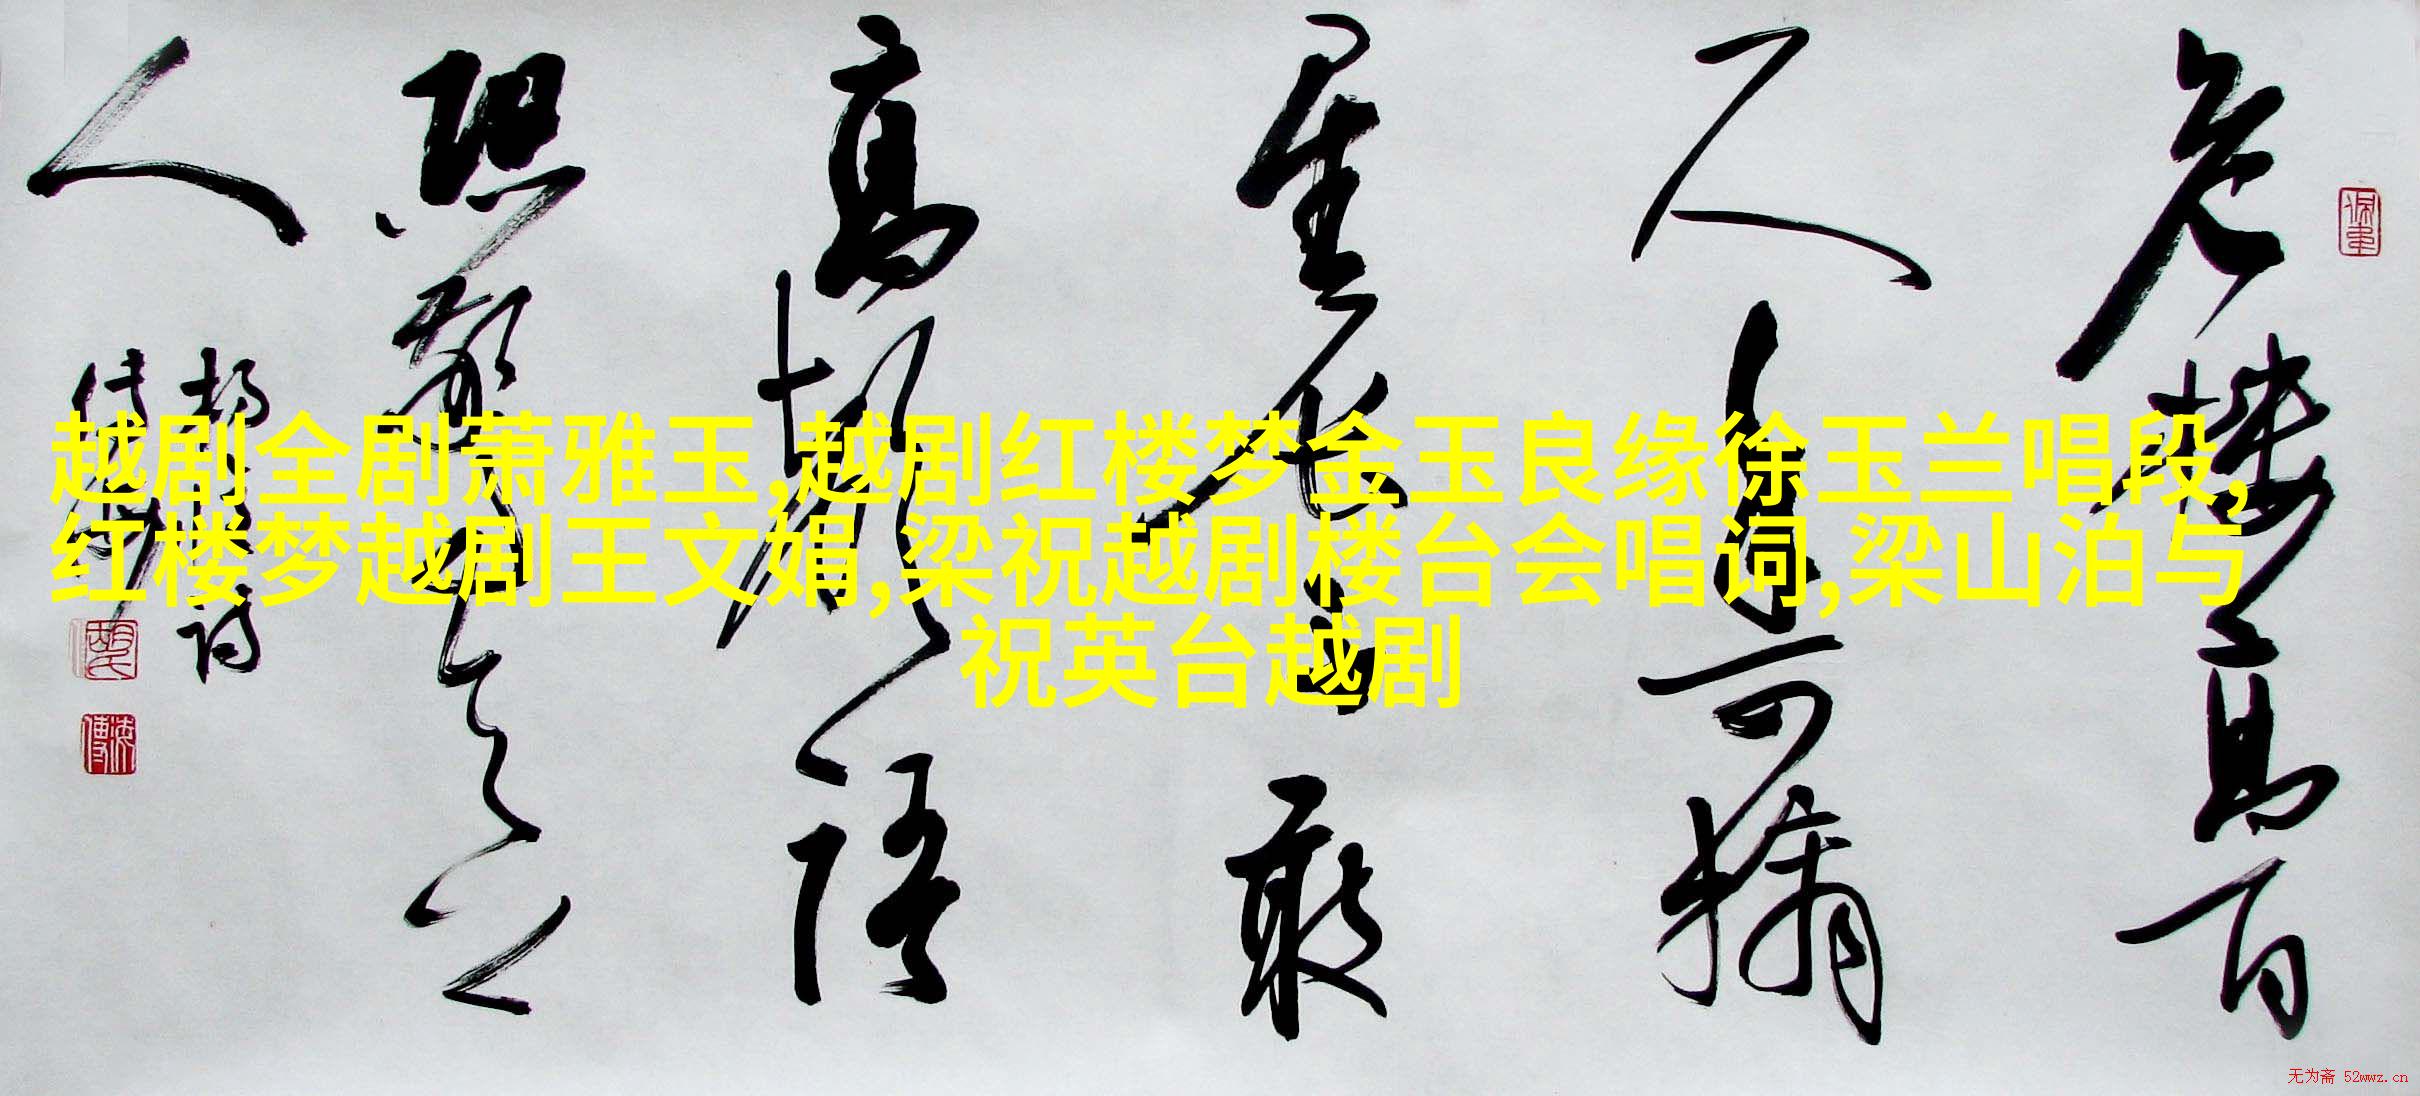 越剧全剧萧雅玉,越剧红楼梦金玉良缘徐玉兰唱段,
红楼梦越剧王文娟,梁祝越剧楼台会唱词,梁山泊与
祝英台越剧
危楼高百
尺手可摘
星辰不敢
高声语
恐惊天上
人
无为斋 52wwz.cn